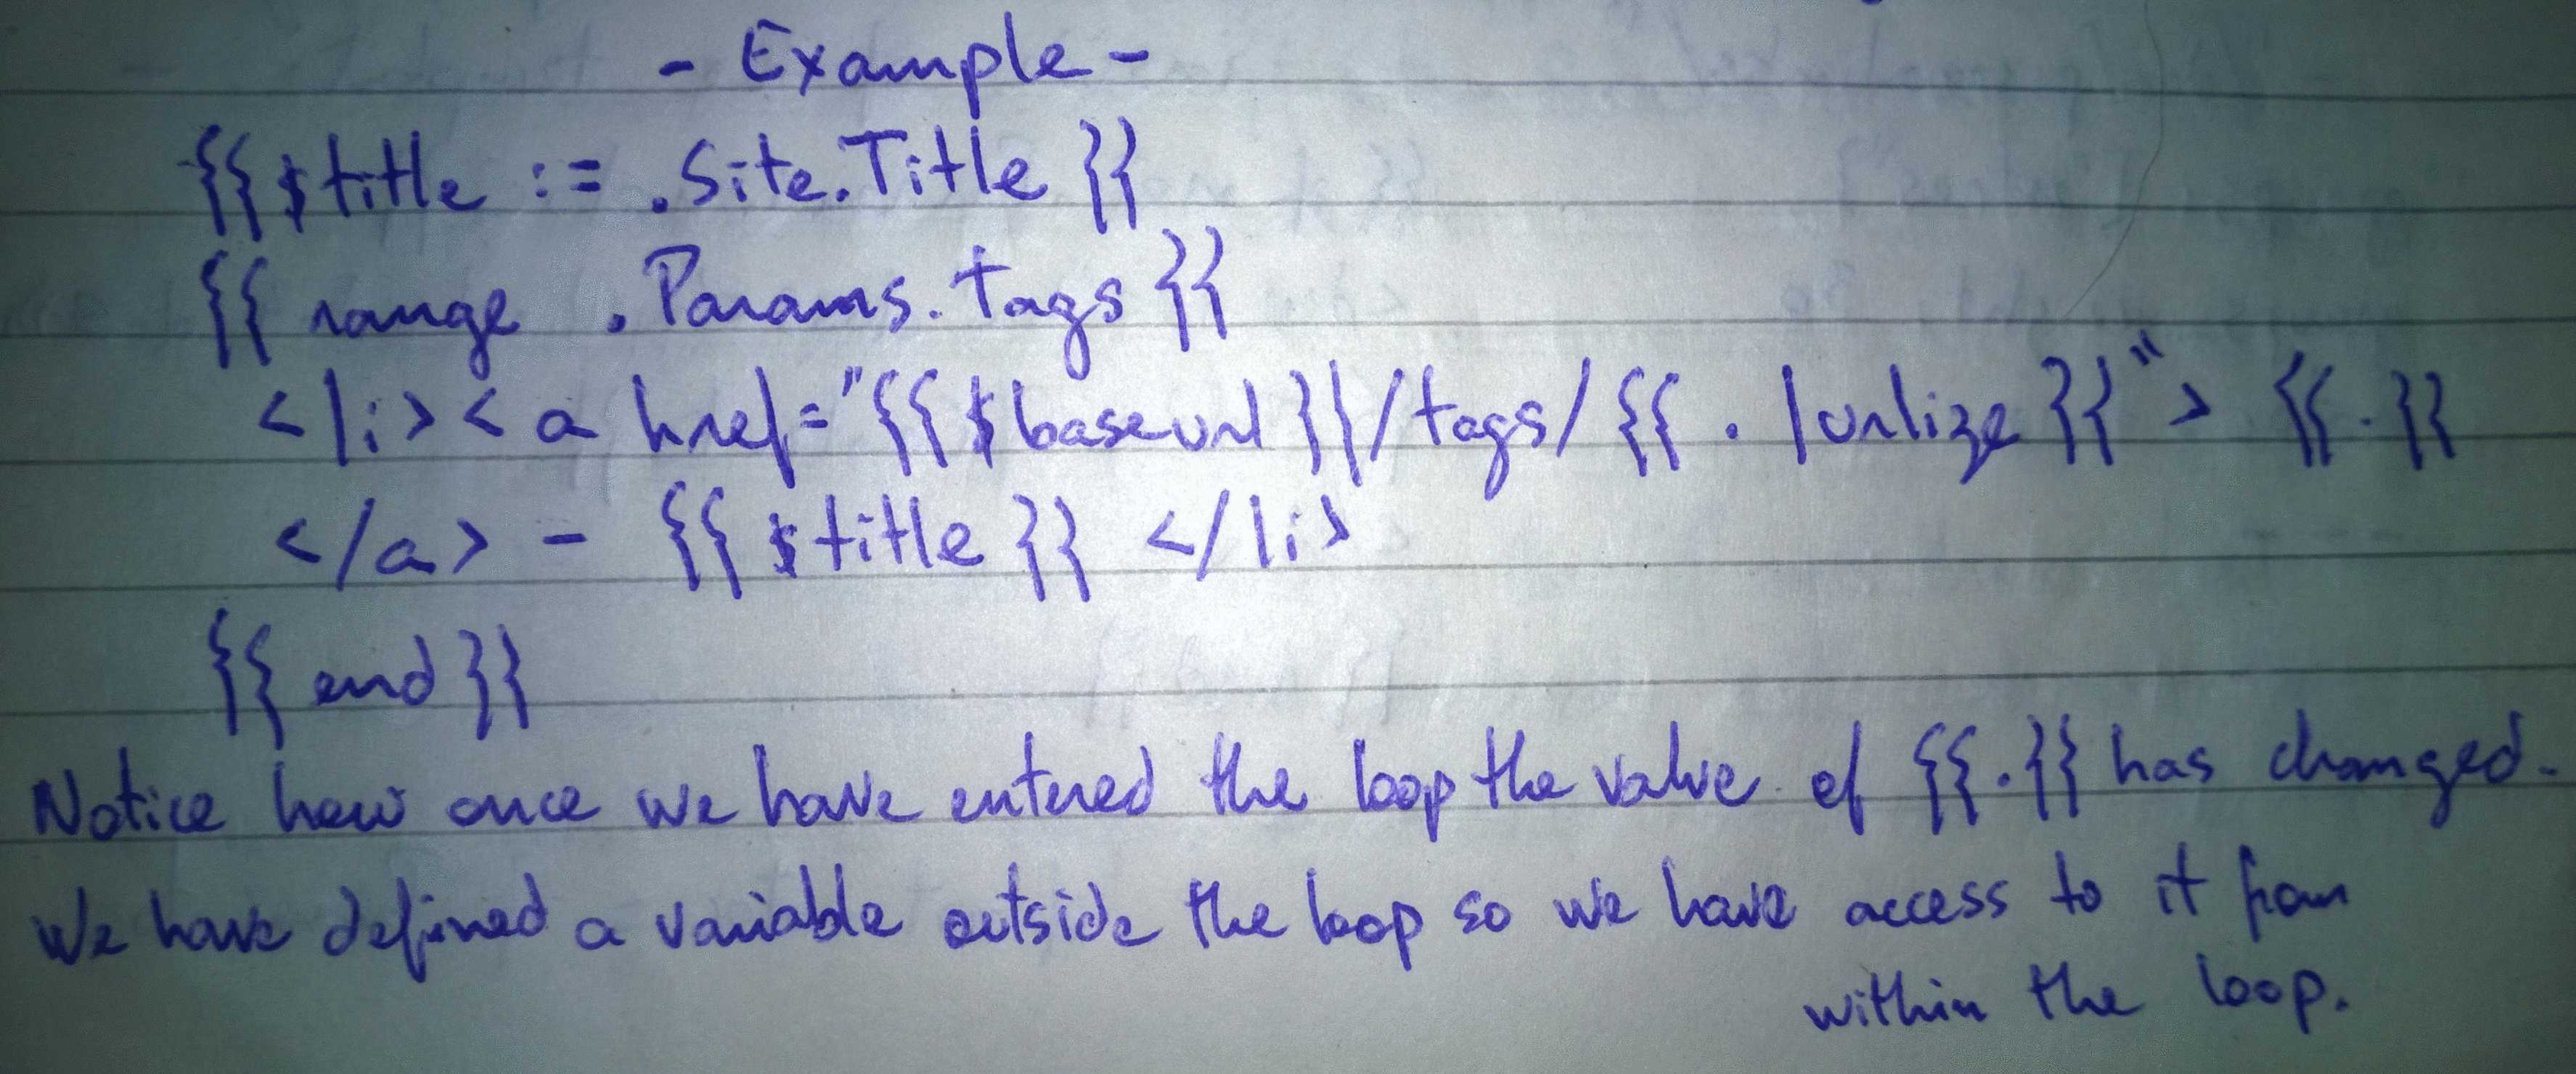 - Example -
{{$title := .Site.Title}}
{{ range .Params.tags}}
</li><a href="{{$baseurl}}/tags/{{ . | urlize}}"> {{.}}
</a> - {{$title}} </li>
{{end}}
Notice how once we have entered the loop the value of {{.}} has changed.
We have defined a variable outside the loop so we have access to it from
within the loop.